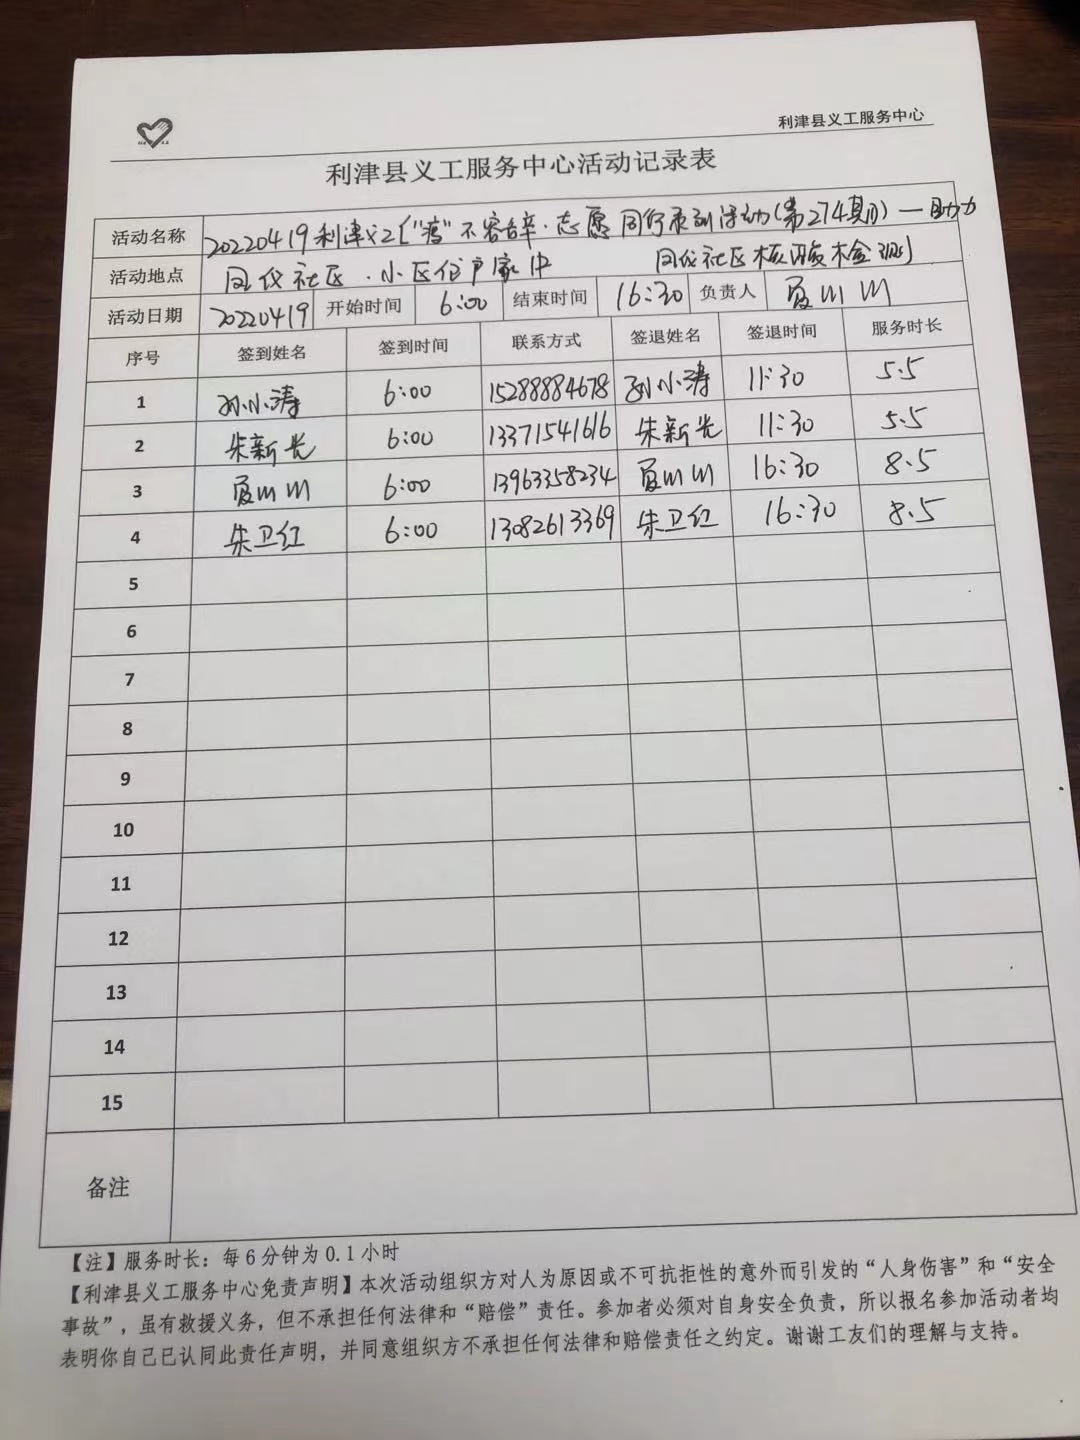 利津县义工服务中心
利津县义工服务中心活动记录表
活动名称 20220419利津义工“疫”不容辞·志愿同行系列活动(第274期)—助力
同仪社区核酸检测
活动地点 同仪社区·小区住户家中
活动日期 20220419 开始时间 6:00 结束时间 16:30 负责人 夏川川
序号 签到姓名 签到时间 联系方式 签退姓名 签退时间 服务时长
1 孙小涛 6:00 15288884678 孙小涛 11:30 5.5
2 朱新光 6:00 13371541616 朱新光 11:30 5.5
3 夏川川 6:00 13963358234 夏川川 16:30 8.5
4 朱卫红 6:00 13082613369 朱卫红 16:30 8.5
5
6
7
8
9
10
11
12
13
14
15
备注
【注】服务时长：每6分钟为0.1小时
【利津县义工服务中心免责声明】本次活动组织方对人为原因或不可抗拒性的意外而引发的“人身伤害”和“安全
事故”，虽有救援义务，但不承担任何法律和“赔偿”责任。参加者必须对自身安全负责，所以报名参加活动者均
表明你自己已认同此责任声明，并同意组织方不承担任何法律和赔偿责任之约定。谢谢工友们的理解与支持。